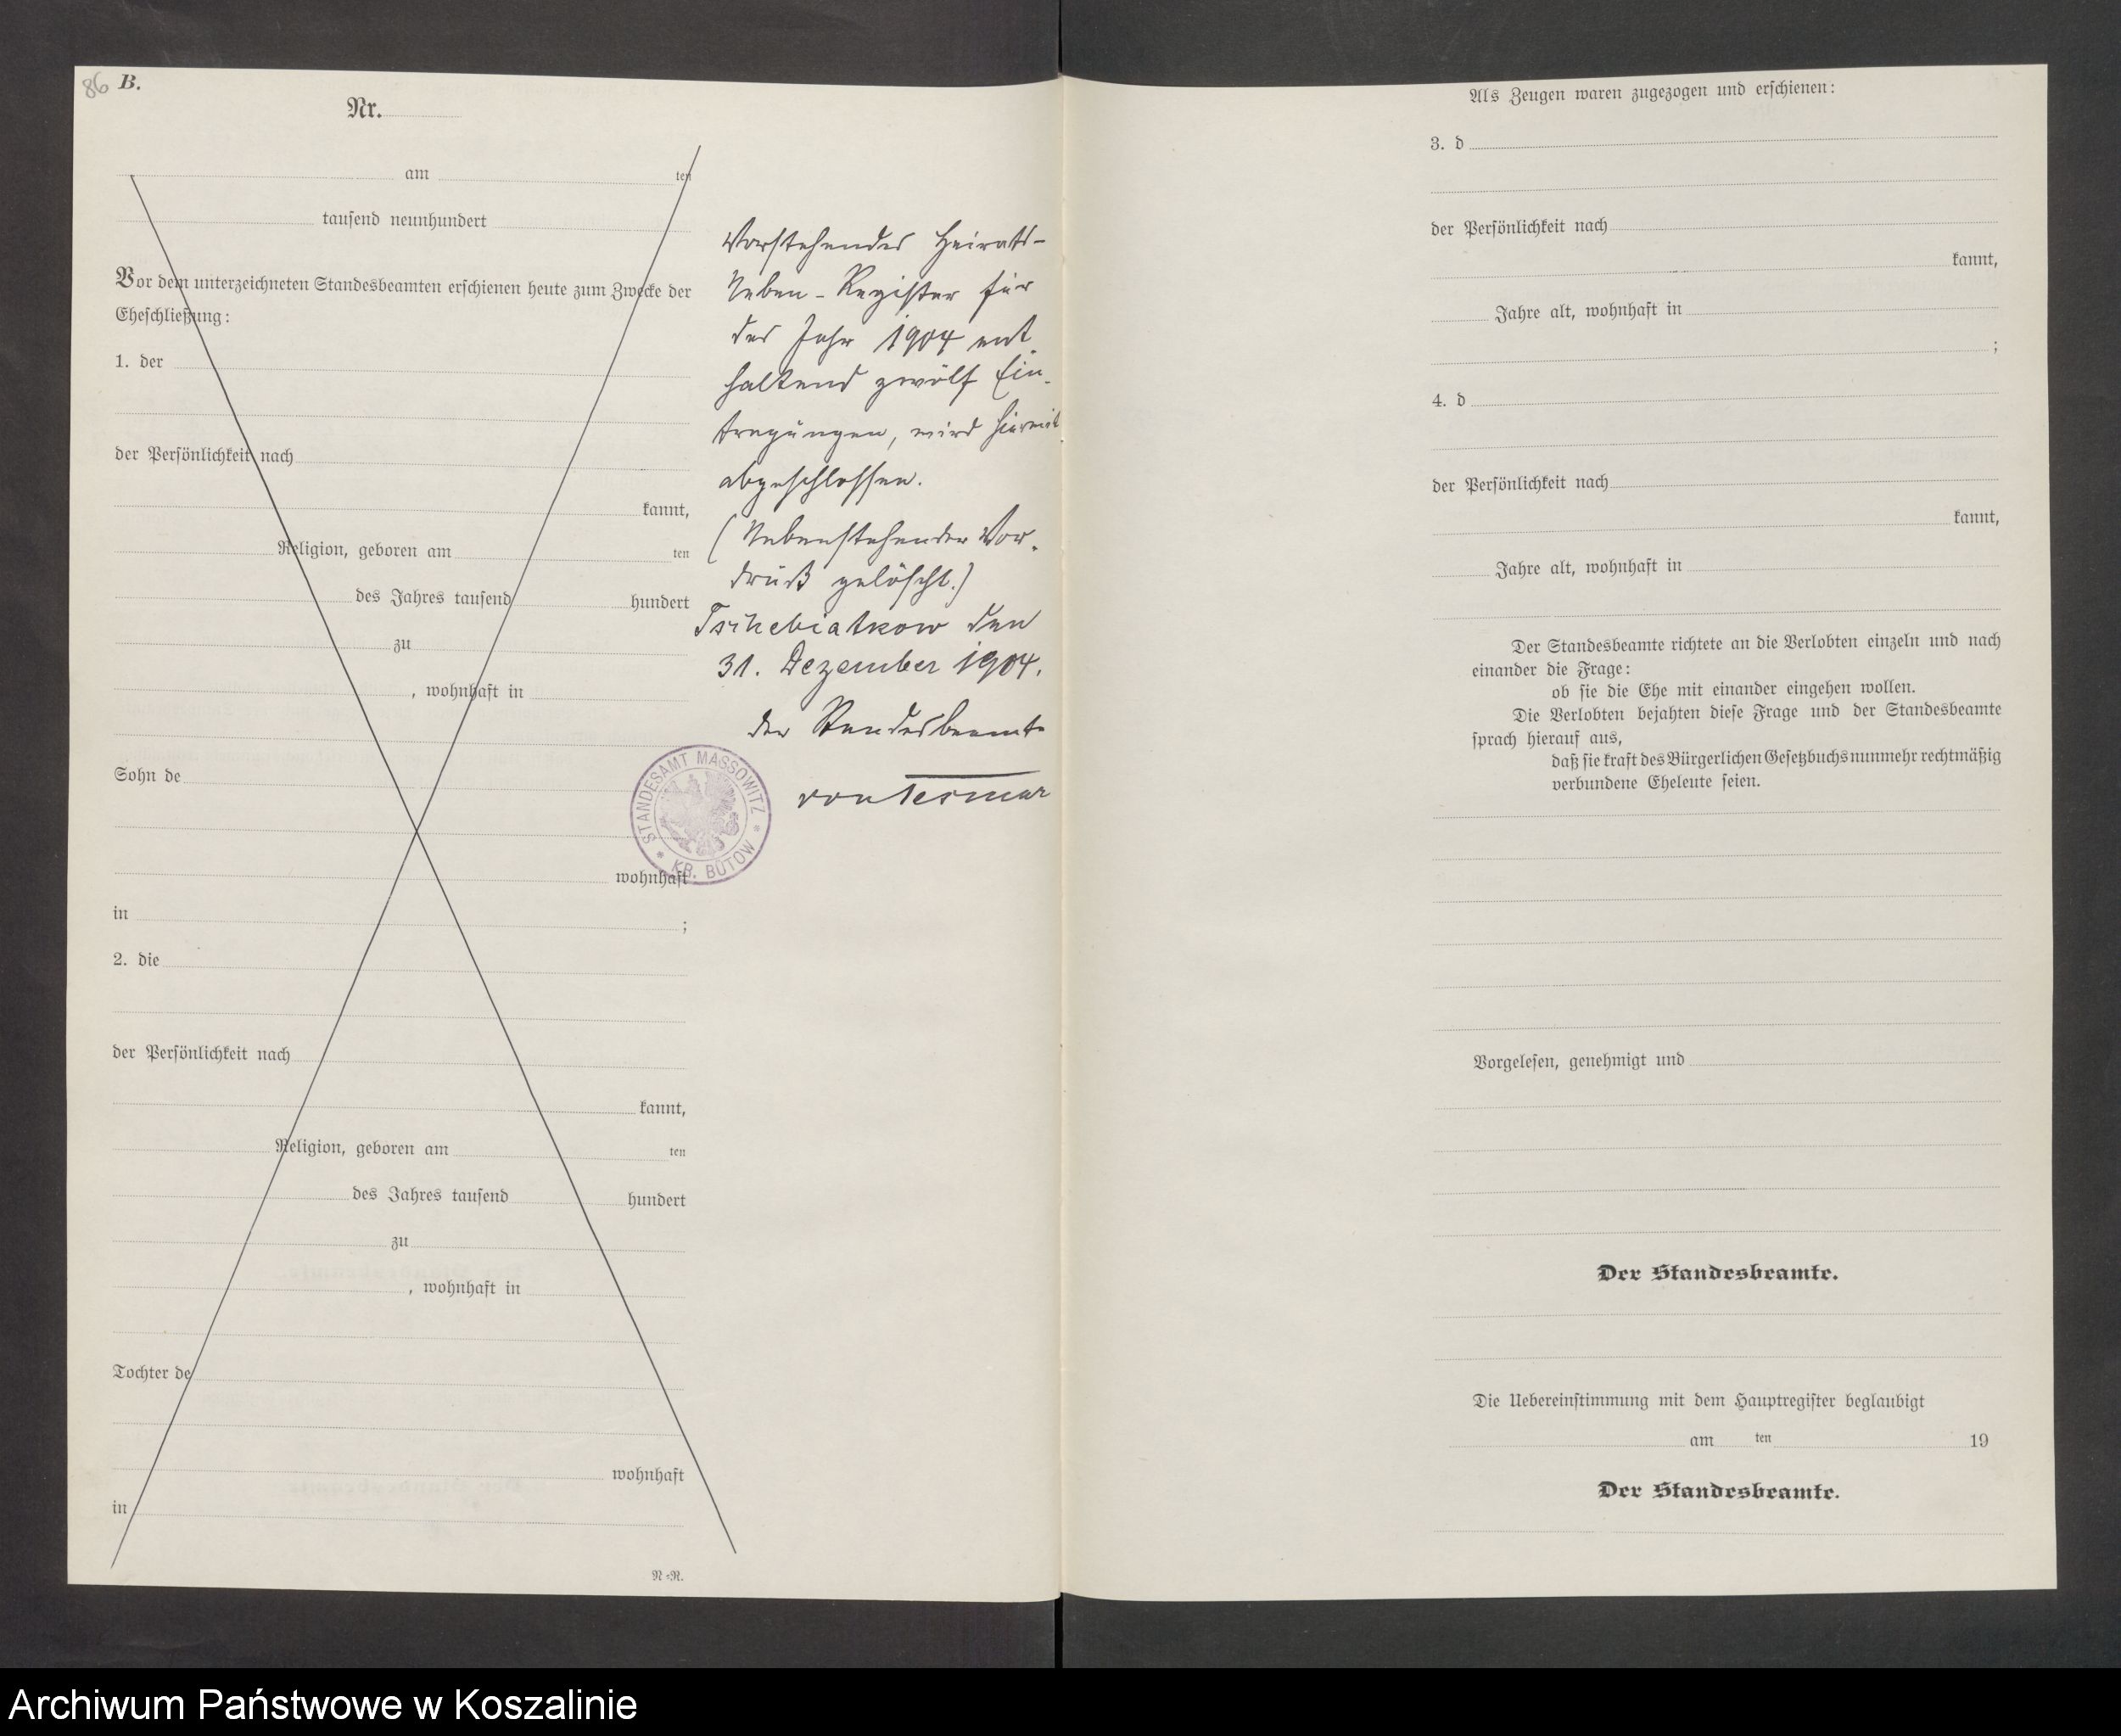 86 B.
Nr.
am ten
tausend neunhundert
Vor dem unterzeichneten Standesbeamten erschienen heute zum Zwecke der
Eheschließung:
1. der
der Persönlichkeit nach
kannt,
Religion, geboren am ten
des Jahres tausend hundert
zu
, wohnhaft in
Sohn de
wohnhaft
in ;
2. die
der Persönlichkeit nach
kannt,
Religion, geboren am ten
des Jahres tausend hundert
zu
, wohnhaft in
Tochter de
wohnhaft
in
N.-R.
Vorstehendes Heirats-
Neben-Register für
das Jahr 1904 ent
haltend zwölf Ein-
tragungen, wird hiermit
abgeschlossen.
(Nebenstehender Vor-
druck gelöscht.)
Tschebiatkow den
31. Dezember 1904.
der Standesbeamte
STANDESAMT MASSOWITZ
* KR. BÜTOW *
Als Zeugen waren zugezogen und erschienen:
3. d
der Persönlichkeit nach
kannt,
Jahre alt, wohnhaft in
;
4. d
der Persönlichkeit nach
kannt,
Jahre alt, wohnhaft in
Der Standesbeamte richtete an die Verlobten einzeln und nach
einander die Frage:
ob sie die Ehe mit einander eingehen wollen.
Die Verlobten bejahten diese Frage und der Standesbeamte
sprach hierauf aus,
daß sie kraft des Bürgerlichen Gesetzbuchs nunmehr rechtmäßig
verbundene Eheleute seien.
Vorgelesen, genehmigt und
Der Standesbeamte.
Die Uebereinstimmung mit dem Hauptregister beglaubigt
am ten 19
Der Standesbeamte.
Archiwum Państwowe w Koszalinie